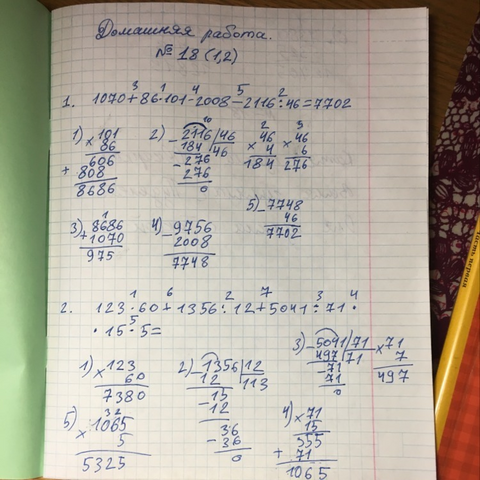 Домашняя работа.
№ 18 (1,2)
1. 1070+86·101-2008-2116:46=7702
3 1 4 5 2
1) ×101
86
+ 606
808
8686
2) -2116|46
184 |46
-276
276
0
2
×46
4
184
3
×46
6
276
3) +8686
1070
975
4) -9756
2008
7748
5) -7748
46
7702
2. 123·60+1356:12+5041:71·
1 6 2 7 3 4
·15·5=
5
1) ×123
60
7380
2) -1356|12
12 |113
-15
12
-36
36
0
3) -5041|71
497 |71
-71
71
0
×71
7
497
5) ×1065
32
5
5325
4) ×71
15
+ 355
71
1065
часть первая